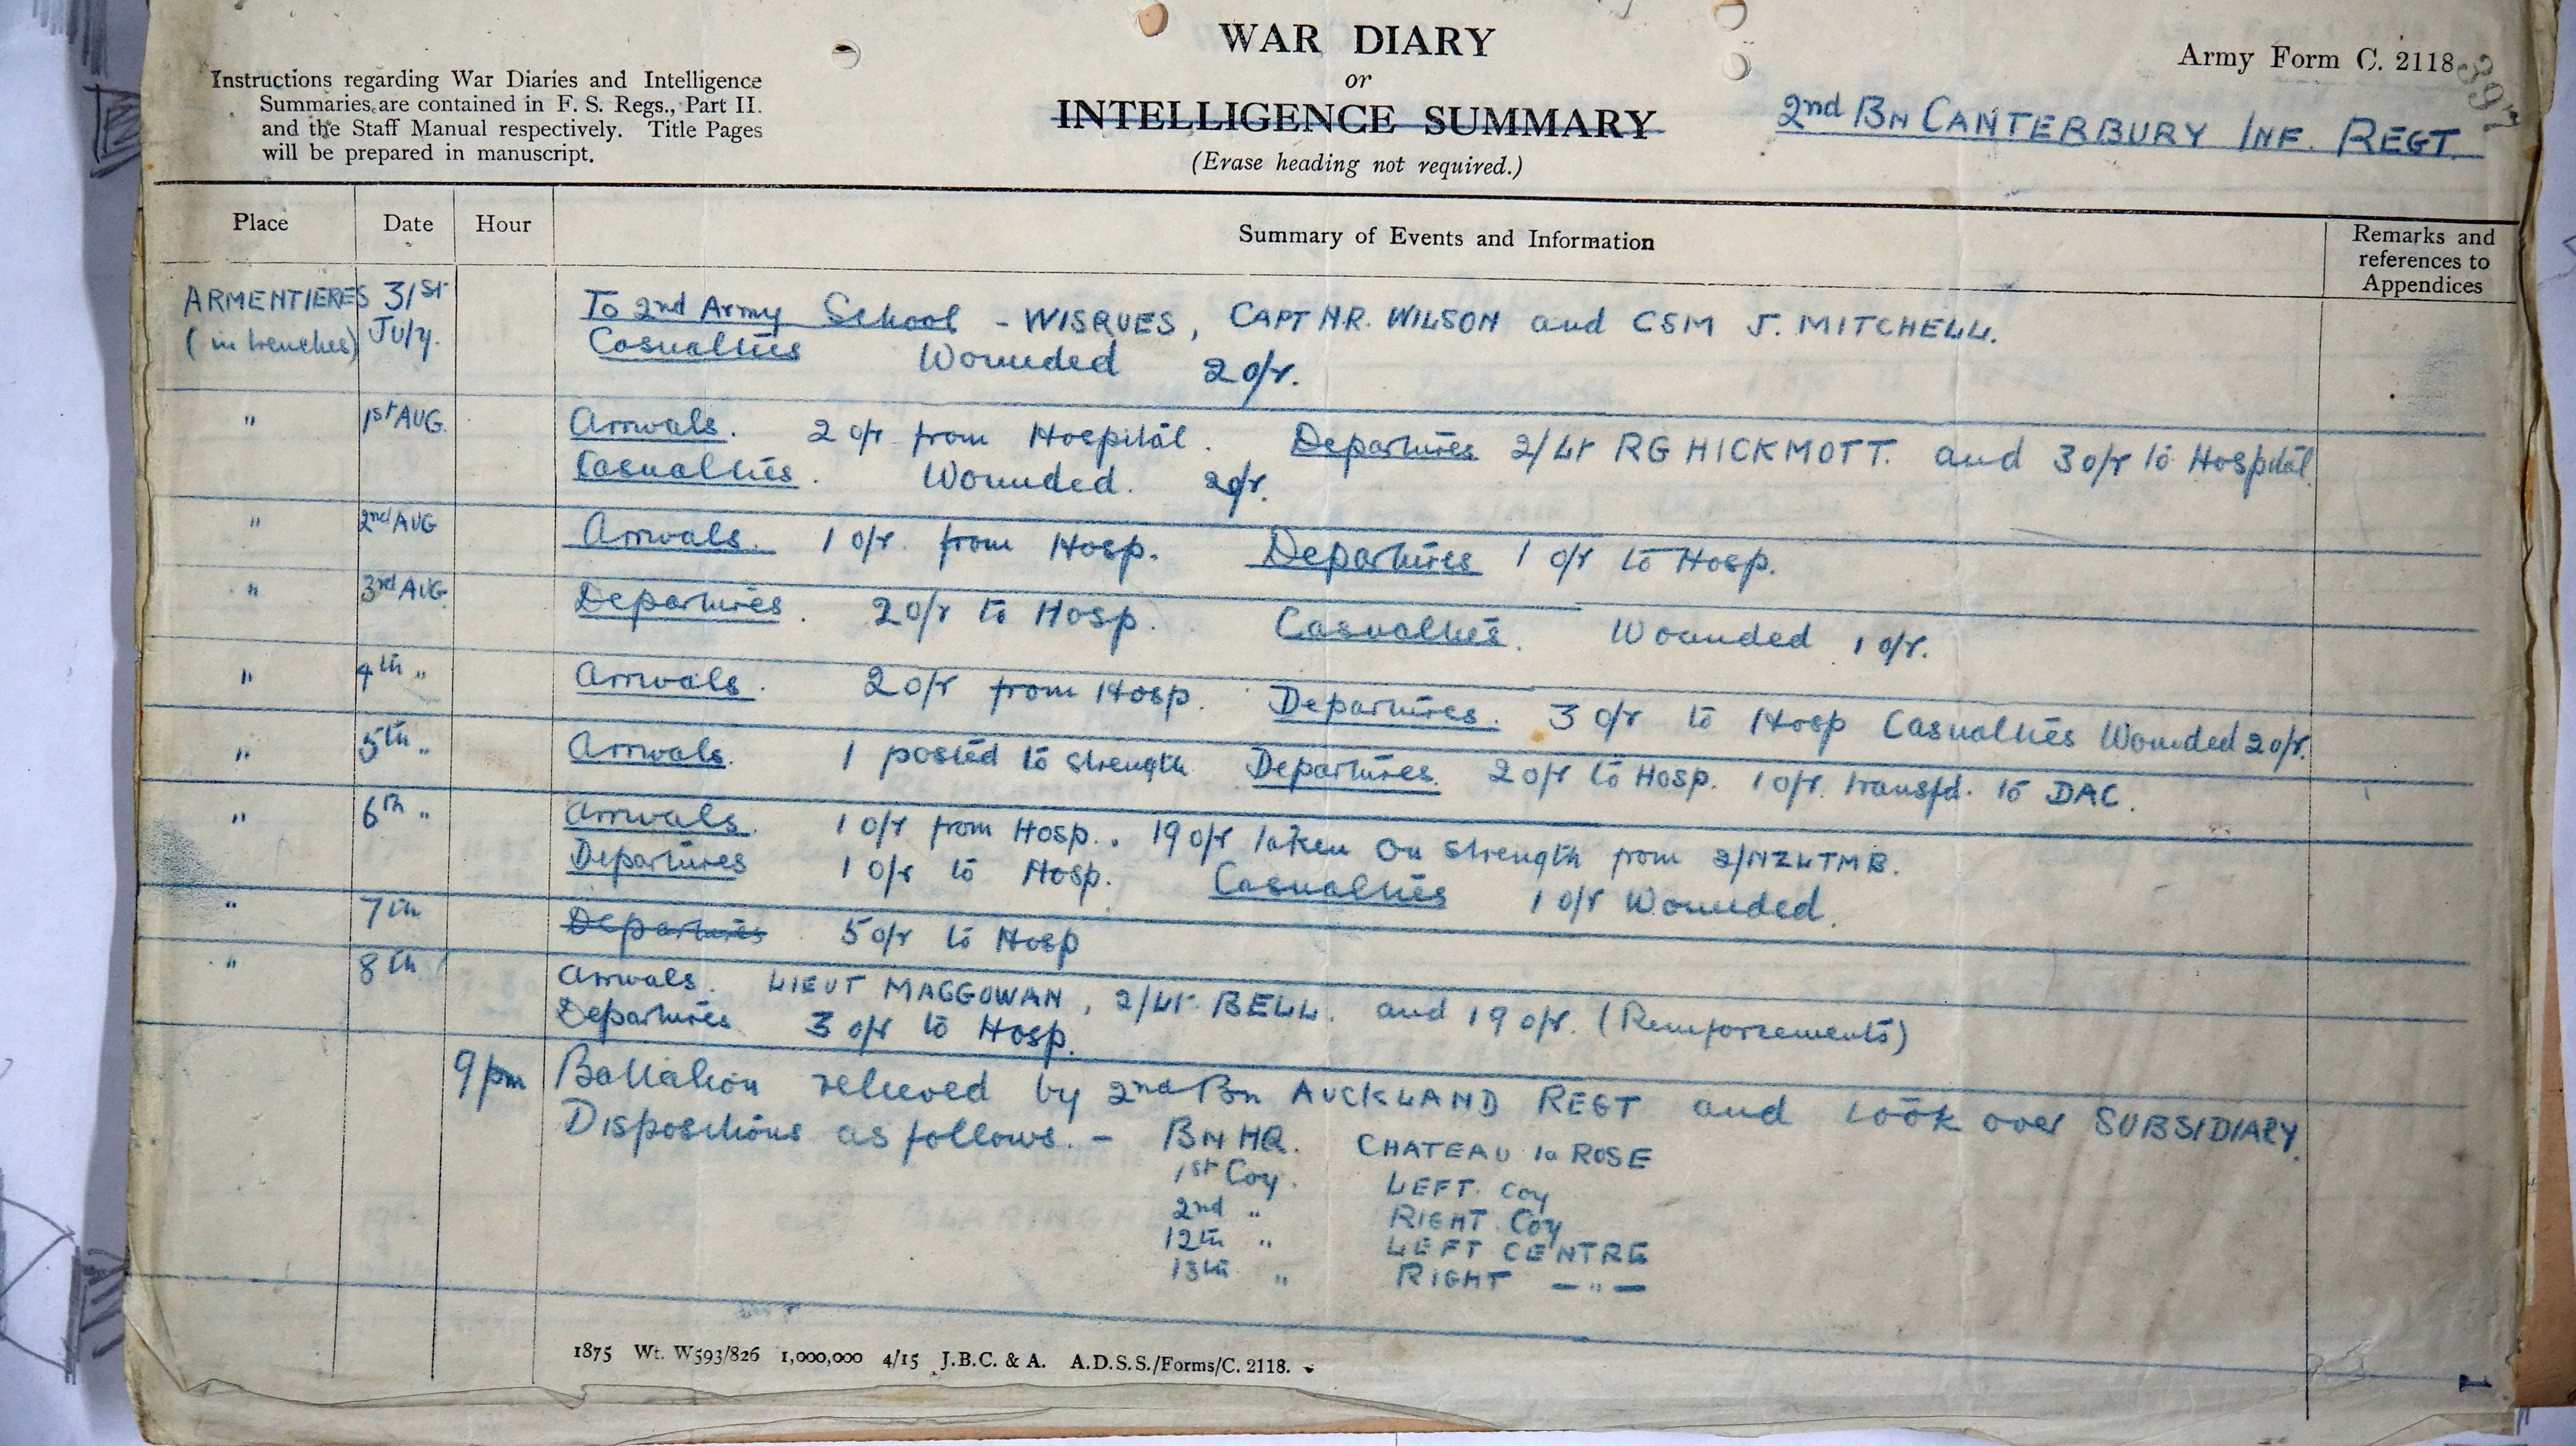 WAR DIARY
or
INTELLIGENCE SUMMARY
(Erase heading not required.)
Instructions regarding War Diaries and Intelligence
Summaries are contained in F. S. Regs., Part II.
and the Staff Manual respectively. Title Pages
will be prepared in manuscript.
Army Form C. 2118
397
2nd BN CANTERBURY INF. REGT.
Place Date Hour Summary of Events and Information Remarks and references to Appendices
ARMENTIERES 31st To 2nd Army School - WISQUES, CAPT N.R. WILSON and CSM J. MITCHELL.
(in trenches) July. Casualties Wounded 2 o/r.
" 1st AUG. Arrivals. 2 o/r from Hospital. Departures 2/Lt RG HICKMOTT. and 3 o/r to Hospital
Casualties. Wounded. 2 o/r.
" 2nd AUG Arrivals. 1 o/r. from Hosp. Departures 1 o/r to Hosp.
" 3rd AUG Departures. 2 o/r to Hosp. Casualties. Wounded 1 o/r.
" 4th " Arrivals. 2 o/r from Hosp. Departures. 3 o/r to Hosp Casualties Wounded 2 o/r.
" 5th " Arrivals. 1 posted to strength Departures. 2 o/r to Hosp. 1 o/r. transfd. to DAC.
" 6th " Arrivals. 1 o/r from Hosp. 19 o/r taken on strength from 2/NZLTMB.
Departures 1 o/r to Hosp. Casualties 1 o/r Wounded.
" 7th Departures 5 o/r to Hosp
" 8th Arrivals. LIEUT MAGGOWAN, 2/Lt. BELL. and 19 o/r. (Reinforcements)
Departures 3 o/r to Hosp.
9 pm Battalion relieved by 2nd Bn AUCKLAND REGT and took over SUBSIDIARY.
Dispositions as follows. - BN HQ. CHATEAU la ROSE
1st Coy. LEFT. Coy
2nd " RIGHT. Coy
12th " LEFT CENTRE
13th " RIGHT - " -
1875 Wt. W593/826 1,000,000 4/15 J.B.C. & A. A.D.S.S./Forms/C. 2118.